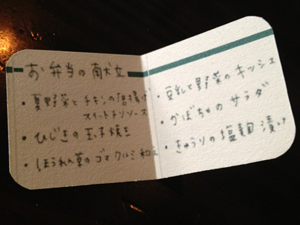 お弁当の献立
・夏野菜とチキンの唐揚げ
スイートチリソース
・ひじきの玉子焼き
・ほうれん草のゴマクルミ和え
・豆乳と野菜のキッシュ
・かぼちゃのサラダ
・きゅうりの塩麹漬け